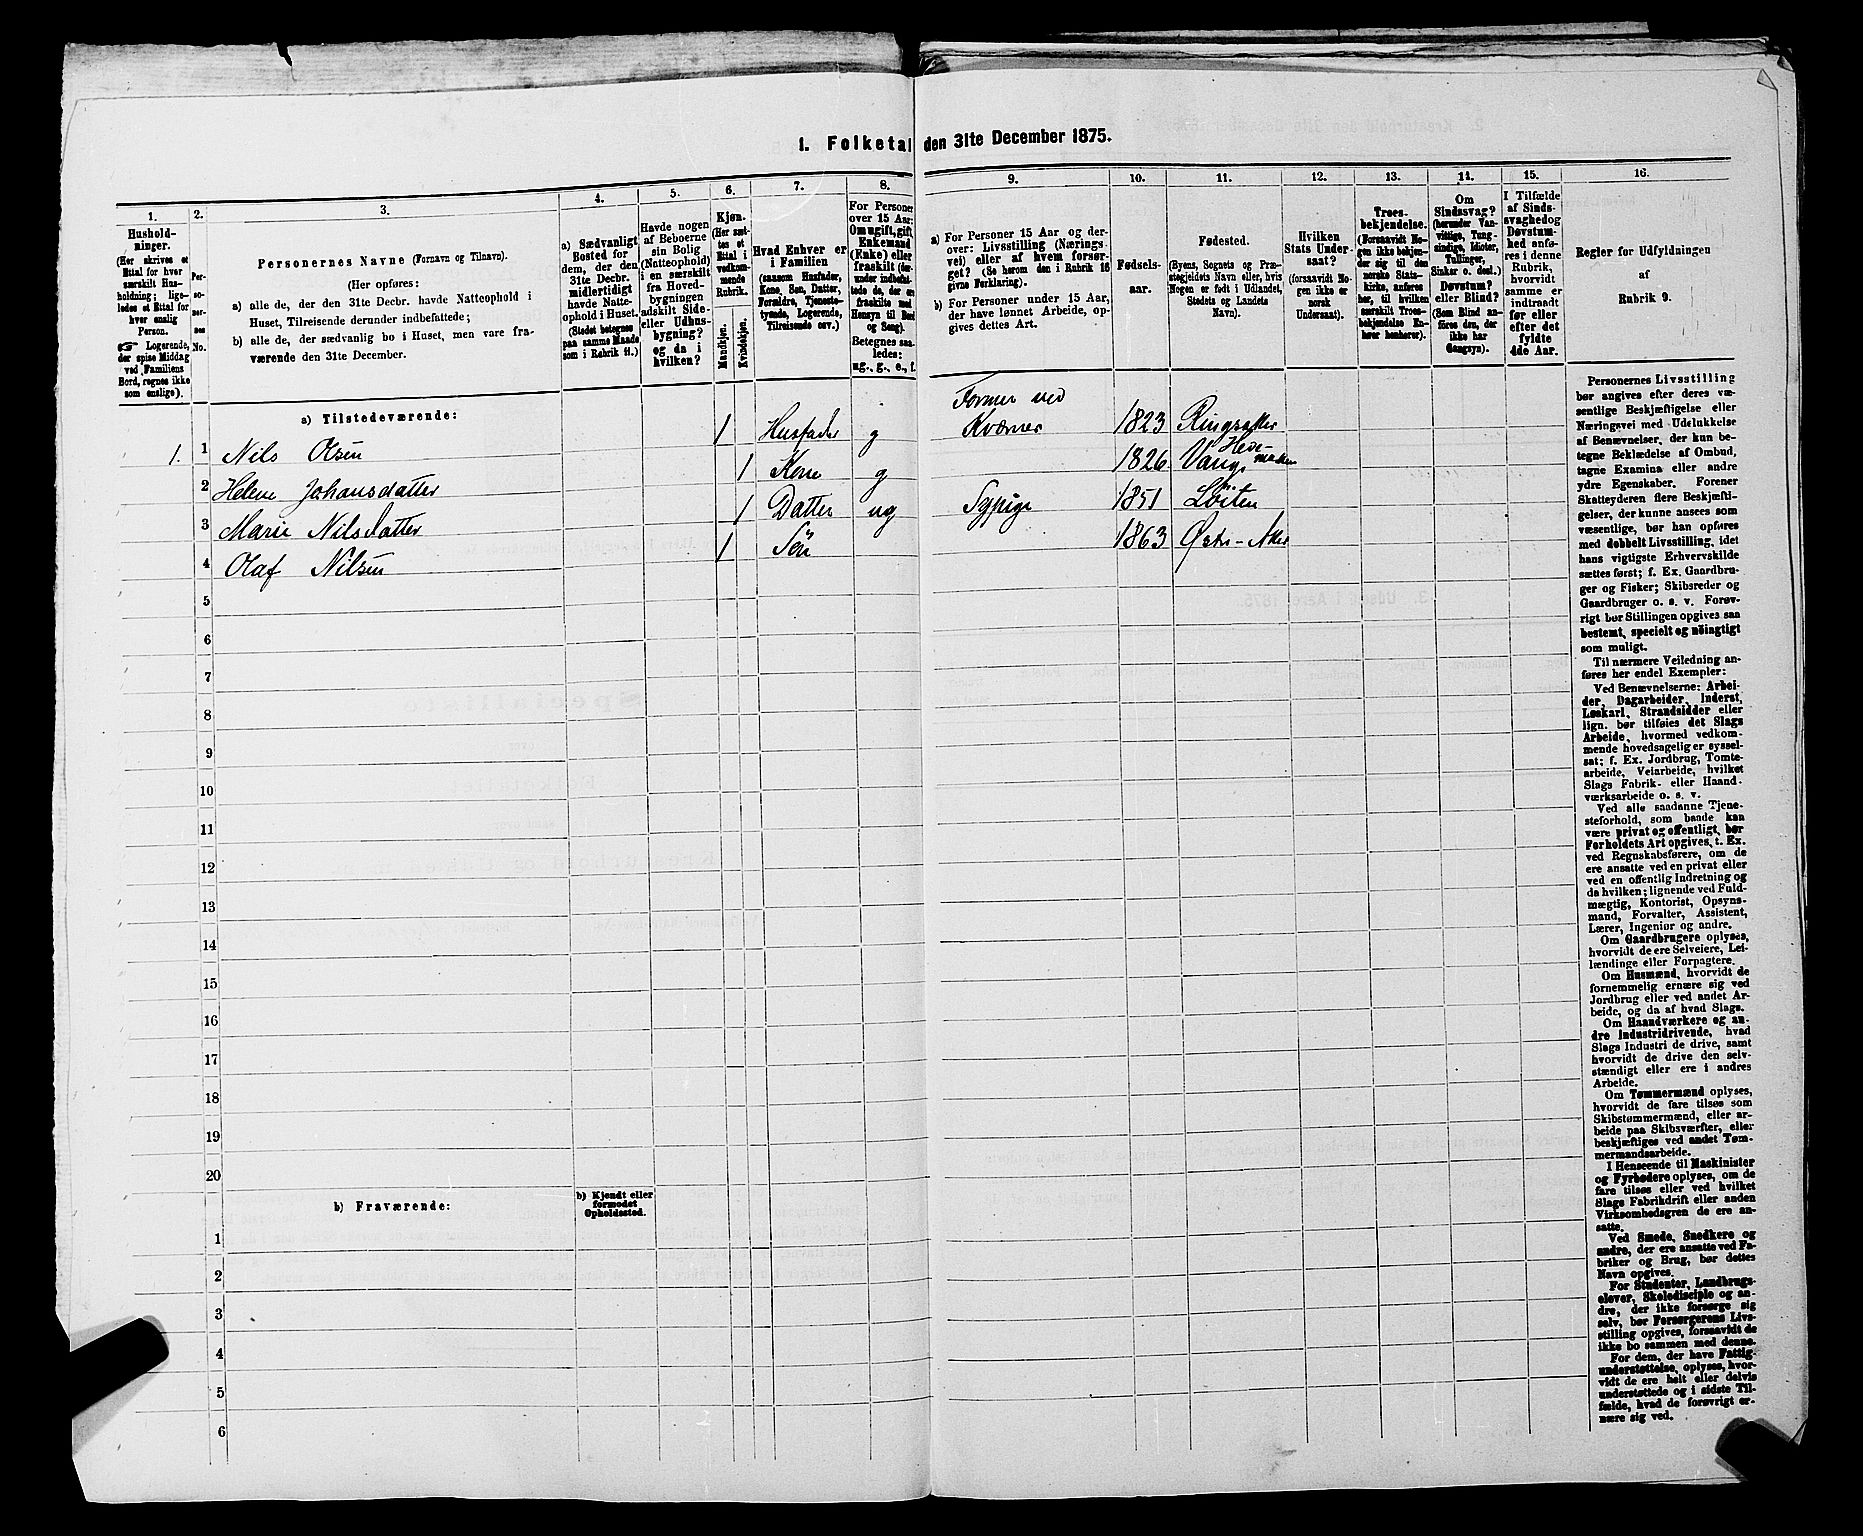 1. Folketal den 31te December 1875.
1.
2.
3.
4.
5.
6.
7.
8.
9.
10.
11.
12.
13.
14.
15.
16.
Hushold-
ninger.
(Her skrives et
Ettal for hver
særskilt Hus-
holdning; lige-
ledes et Ettal for
hver enslig
Person.
☞ Logerende,
der spise Middag
ved Familiens
Bord, regnes ikke
som enslige).
Per-
so-
ner-
nes
No.
Personernes Navne (Fornavn og Tilnavn).
(Her opføres:
a) alle de, der den 31te Decbr. havde Natteophold i
Huset, Tilreisende derunder indbefattede;
b) alle de, der sædvanlig bo i Huset, men vare fra-
værende den 31te December.
a) Sædvanligt
Bosted for
dem, der den
31te Decbr.
midlertidigt
havde Natte-
ophold i Huset.
(Stedet betegnes
paa samme Maade
som i Rubrik 11.)
Havde nogen
af Beboerne
sin Bolig
(Natteophold)
i en særskilt
fra Hoved-
bygningen
adskilt Side-
eller Udhus-
bygning?
og da i
hvilken?
Kjøn.
(Her sæt-
tes et
Ettal i
vedkom-
mende
Rubrik.
Mandkjøn.
Kvindekjøn.
Hvad Enhver er
i Familien
(saasom Husfader,
Kone, Søn, Datter,
Forældre, Tjeneste-
tyende, Logerende,
Tilreisende osv.)
For Personer
over 15 Aar:
Om ugift, gift,
Enkemand
(Enke) eller
fraskilt (her-
under indbefat-
tede de, der ere
fraskilte med
Hensyn til Bord
og Seng).
Betegnes saa-
ledes:
ug., g., e., f.
a) For Personer 15 Aar og der-
over: Livsstilling (Nærings-
vei) eller af hvem forsør-
get? (Se herom den i Rubrik 16
givne Forklaring).
b) For Personer under 15 Aar,
der have lønnet Arbeide, op-
gives dettes Art.
Fødsels-
aar.
Fødested.
(Byens, Sognets og Præ-
stegjeldets Navn eller, hvis
Nogen er født i Udlandet,
Stedets og Landets
Navn).
Hvilken
Stats Under-
saat?
(forsaavidt No-
gen ikke er
norsk
Undersaat).
Troes-
bekjendelse.
(Forsaavidt No-
gen ikke bekjen-
der sig til den
norske Stats-
kirke, anføres
her, til hvilken
særskilt Troes-
bekjendelse En-
hver henhører).
Om
Sindssvag?
(herunder Van-
vittige, Tung-
sindige, Idioter,
Tullinger,
Sinker o. desl.)
Døvstum?
eller Blind?
(Som Blind an-
føres den, der
ikke har
Gangsyn).
I Tilfælde
af Sinds-
svaghed og
Døvstum-
hed anfø-
res i denne
Rubrik,
hvorvidt
samme er
indtraadt
før eller
efter det
fyldte
4de Aar.
Regler for Udfyldningen
af
Rubrik 9.
a) Tilstedeværende:
1. 1 Nils Olsen 1 Husfader g Former ved Kværner 1823 Ringsaker
2 Helene Johansdatter 1 Kone g 1826 Vang, Hede-marken
3 Marie Nilsdatter 1 Datter ug Sypige 1851 Løiten
4 Olaf Nilsen 1 Sön 1863 Østr-Aker
5
6
7
8
9
10
11
12
13
14
15
16
17
18
19
20
b) Fraværende:
b) Kjendt eller
formodet
Opholdssted.
1
2
3
4
5
6
Personernes Livsstilling
bør angives efter deres væ-
sentlige Beskjæftigelse eller
Næringsvei med Udelukkelse
af Benævnelser, der kun be-
tegne Beklædelse af Ombud,
tagne Examina eller andre
ydre Egenskaber. Forener
Skatteyderen flere Beskjæfti-
gelser, der kunne ansees som
væsentlige, bør han opføres
med dobbelt Livsstilling, idet
hans vigtigste Erhvervskilde
sættes først; f. Ex. Gaardbru-
ger og Fisker; Skibsreder og
Gaardbruger o. s. v. Forøv-
rigt bør Stillingen opgives saa
bestemt, specielt og nöiagtigt
som muligt.
Til nærmere Veiledning an-
føres her endel Exempler:
Ved Benævnelserne: Arbei-
der, Dagarbeider, Inderst,
Løskarl, Strandsidder eller
lign. bør tilføies det Slags
Arbeide, hvormed vedkom-
mende hovedsagelig er syssel-
sat; f. Ex. Jordbrug, Tomte-
arbeide, Veiarbeide, hvilket
Slags Fabrik- eller Haand-
værksarbeide o. s. v.
Ved alle saadanne Tjene-
steforhold, som baade kan
være privat og offentligt, bør
Forholdets Art opgives, f. Ex.
ved Regnskabsførere, om de
ere ansatte ved en privat eller
ved en offentlig Indretning og
da hvilken; lignende ved Fuld-
mægtig, Kontorist, Opsyns-
mand, Forvalter, Assistent,
Lærer, Ingeniør og andre.
Om Gaardbrugere oplyses,
hvorvidt de ere Selveiere, Lei-
lændinge eller Forpagtere.
Om Husmænd, hvorvidt de
fornemmelig ernære sig ved
Jordbrug eller ved andet Ar-
beide, og da af hvad Slags.
Om Haandværkere og an-
dre Industridrivende, hvad
Slags Industri de drive, samt
hvorvidt de drive den selv-
stændigt eller ere i andres
Arbeide.
Om Tømmermænd oplyses,
hvorvidt de fare tilsøs som
Skibstømmermænd, eller ar-
beide paa Skibsværfter, eller
beskjæftiges ved andet Tøm-
mermandsarbeide.
I Henseende til Maskinister
og Fyrbødere oplyses, om de
fare tilsøs eller ved hvilket
Slags Fabrikdrift eller anden
Virksomhedsgren de ere an-
satte.
Ved Smede, Snedkere og
andre, der ere ansatte ved Fa-
briker og Brug, bør dettes
Navn opgives.
For Studenter, Landbrugs-
elever, Skoledisciple og an-
dre, der ikke forsørge sig
selv, bør Forsørgerens Livs-
stilling opgives, forsaavidt de
ikke bo sammen med denne.
For dem, der have Fattig-
understøttelse, oplyses, hvor-
vidt de ere helt eller delvis
understøttede og i sidste Til-
fælde, hvad de forøvrigt er-
nære sig ved.